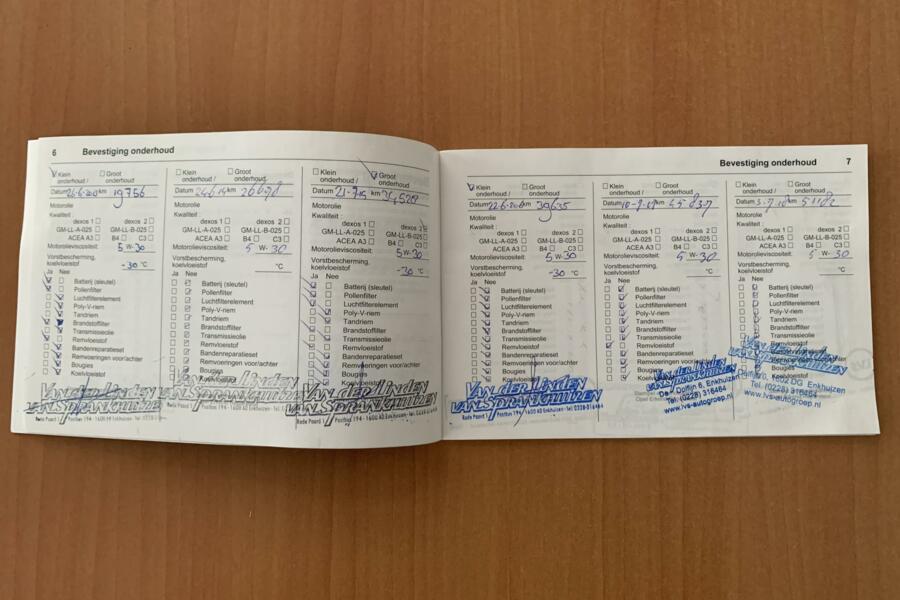 6 Bevestiging onderhoud
Klein onderhoud / Groot onderhoud
Datum km 19756
Motorolie
Kwaliteit :
dexos 1 dexos 2
GM-LL-A-025 GM-LL-B-025
ACEA A3 B4 C3
Motorolieviscositeit: 5 W-30
Vorstbescherming,
koelvloeistof -30 °C
Ja Nee
Batterij (sleutel)
Pollenfilter
Luchtfilterelement
Poly-V-riem
Tandriem
Brandstoffilter
Transmissieolie
Remvloeistof
Bandenreparatieset
Remvoeringen voor/achter
Bougies
Koelvloeistof
Van der Linden
van Sprankhuizen
Klein onderhoud / Groot onderhoud
Datum km
Motorolie
Kwaliteit :
dexos 1 dexos 2
GM-LL-A-025 GM-LL-B-025
ACEA A3 B4 C3
Motorolieviscositeit: 5 W-30
Vorstbescherming,
koelvloeistof °C
Ja Nee
Batterij (sleutel)
Pollenfilter
Luchtfilterelement
Poly-V-riem
Tandriem
Brandstoffilter
Transmissieolie
Remvloeistof
Bandenreparatieset
Remvoeringen voor/achter
Bougies
Koelvloeistof
Van der Linden
van Sprankhuizen
Postbus 194 - 1600 AD Enkhuizen - Tel. 0228-316464
Klein onderhoud / Groot onderhoud
Datum km
Motorolie
Kwaliteit :
dexos 1 dexos 2
GM-LL-A-025 GM-LL-B-025
ACEA A3 B4 C3
Motorolieviscositeit: 5 W-30
Vorstbescherming,
koelvloeistof -30 °C
Ja Nee
Batterij (sleutel)
Pollenfilter
Luchtfilterelement
Poly-V-riem
Tandriem
Brandstoffilter
Transmissieolie
Remvloeistof
Bandenreparatieset
Remvoeringen voor/achter
Bougies
Koelvloeistof
Van der Linden
van Sprankhuizen
Postbus 194 - 1600 AD Enkhuizen - Tel. 0228-316464
Bevestiging onderhoud 7
Klein onderhoud / Groot onderhoud
Datum km 39625
Motorolie
Kwaliteit :
dexos 1 dexos 2
GM-LL-A-025 GM-LL-B-025
ACEA A3 B4 C3
Motorolieviscositeit: 5 W-30
Vorstbescherming,
koelvloeistof -30 °C
Ja Nee
Batterij (sleutel)
Pollenfilter
Luchtfilterelement
Poly-V-riem
Tandriem
Brandstoffilter
Transmissieolie
Remvloeistof
Bandenreparatieset
Remvoeringen voor/achter
Bougies
Koelvloeistof
Van der Linden
van Sprankhuizen
Postbus 194 - 1600 AD Enkhuizen - Tel. 0228-316464
Klein onderhoud / Groot onderhoud
Datum km
Motorolie
Kwaliteit :
dexos 1 dexos 2
GM-LL-A-025 GM-LL-B-025
ACEA A3 B4 C3
Motorolieviscositeit: 5 W-30
Vorstbescherming,
koelvloeistof °C
Ja Nee
Batterij (sleutel)
Pollenfilter
Luchtfilterelement
Poly-V-riem
Tandriem
Brandstoffilter
Transmissieolie
Remvloeistof
Bandenreparatieset
Remvoeringen voor/achter
Bougies
Koelvloeistof
van Sprankhuizen
De Dolfijn 6, Enkhuizen
Tel. (0228) 316464
www.lvs-autogroep.nl
Klein onderhoud / Groot onderhoud
Datum km
Motorolie
Kwaliteit :
dexos 1 dexos 2
GM-LL-A-025 GM-LL-B-025
ACEA A3 B4 C3
Motorolieviscositeit: 5 W-30
Vorstbescherming,
koelvloeistof °C
Ja Nee
Batterij (sleutel)
Pollenfilter
Luchtfilterelement
Poly-V-riem
Tandriem
Brandstoffilter
Transmissieolie
Bougies
Koelvloeistof
1602 DG Enkhuizen
Tel. (0228) 316464
www.lvs-autogroep.nl